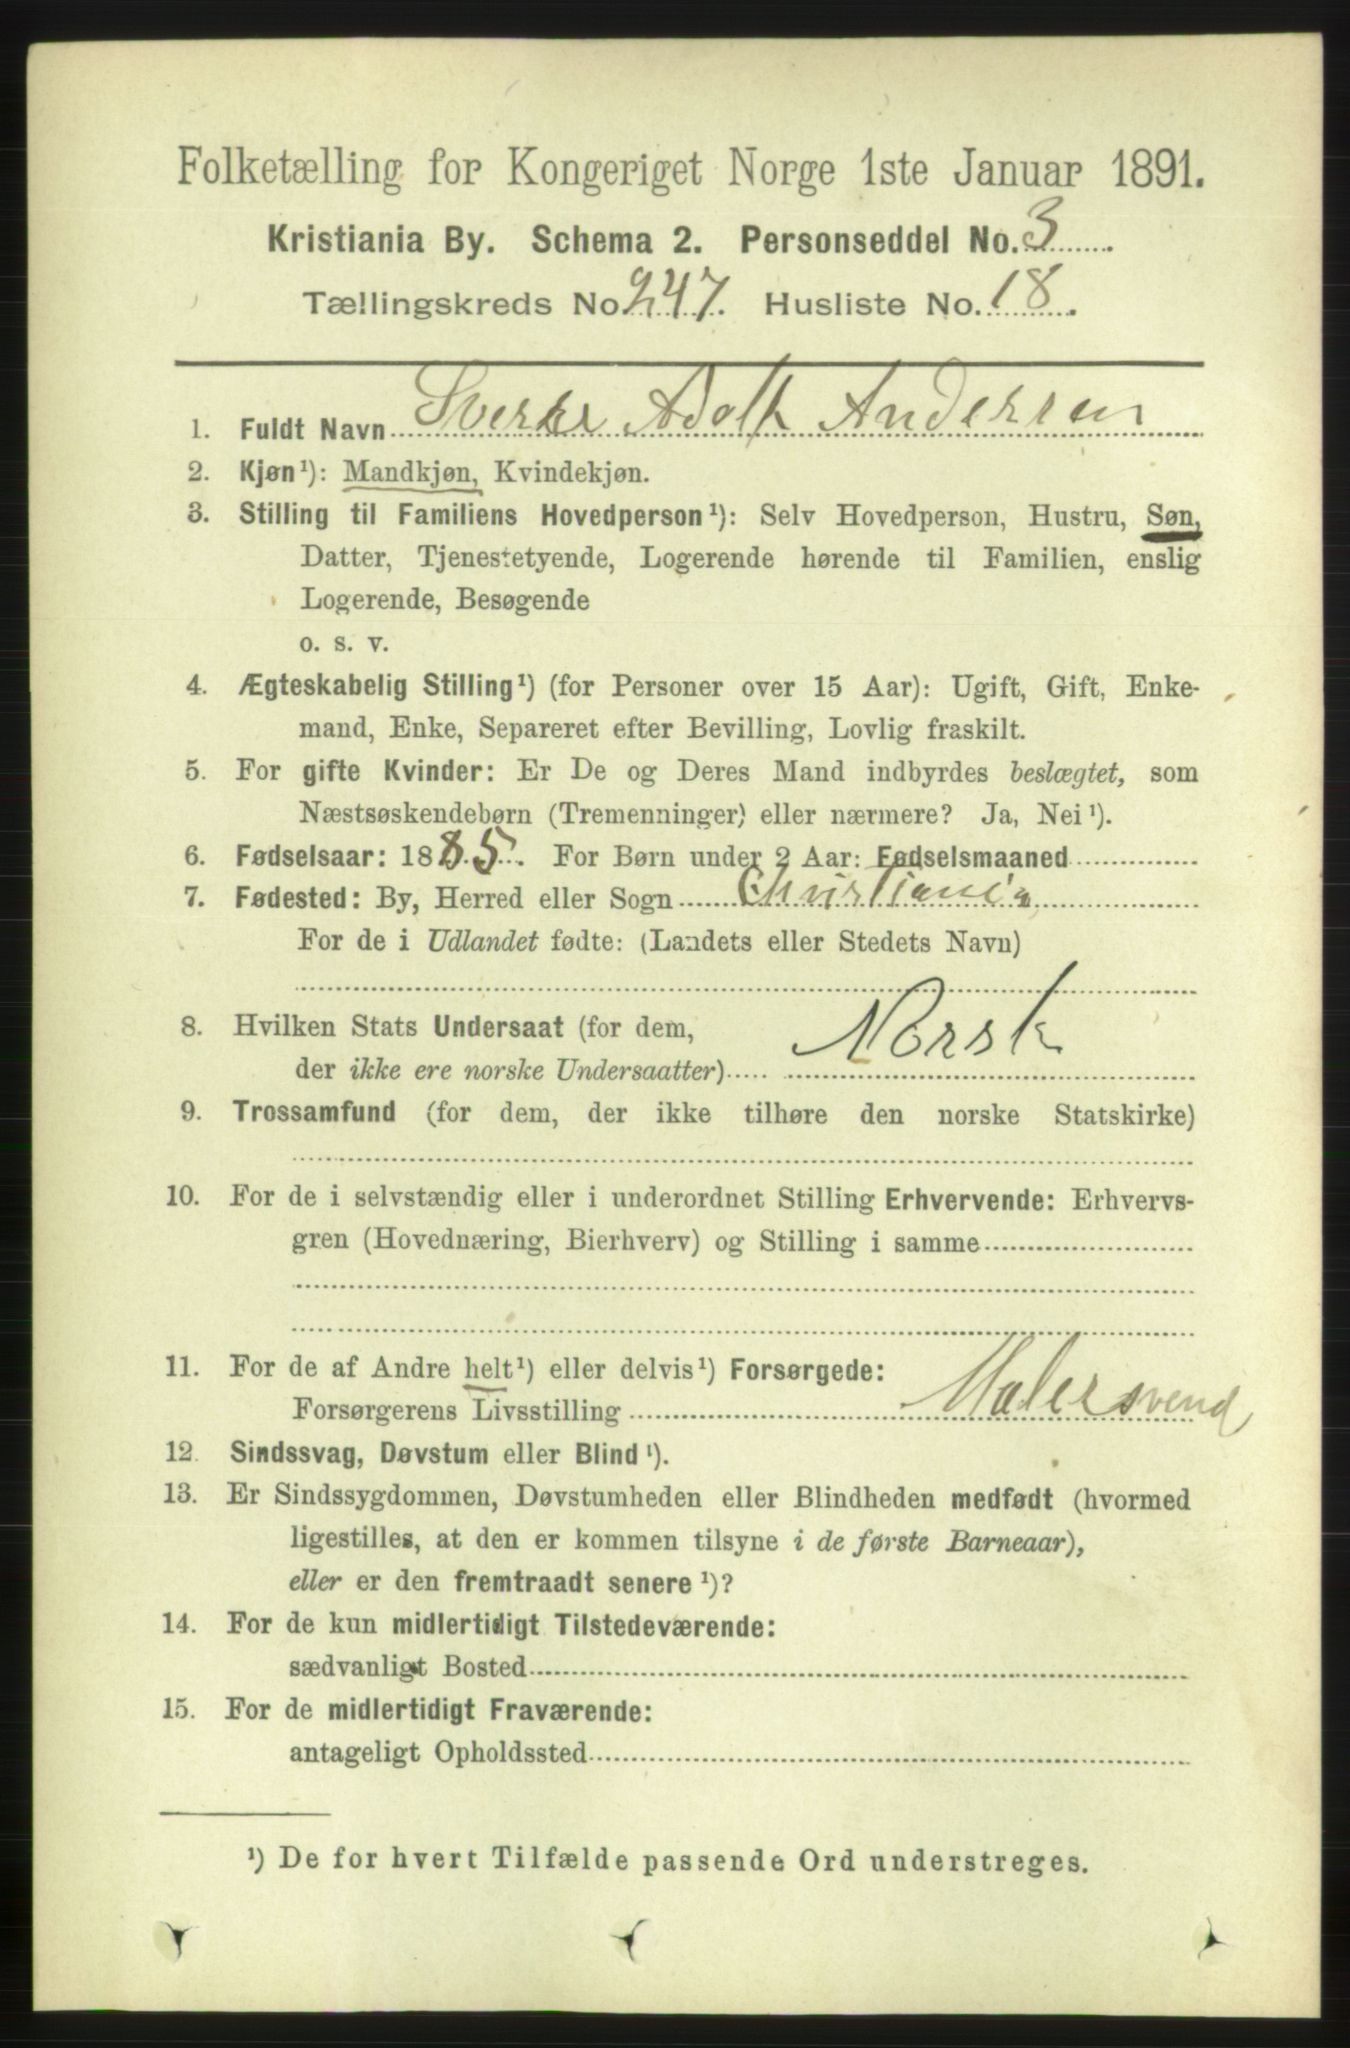 Folketælling for Kongeriget Norge 1ste Januar 1891.
Kristiania By. Schema 2. Personseddel No. 3
Tællingskreds No. 247. Husliste No. 18.
1. Fuldt Navn Sverre Adolf Andersen
2. Kjøn¹): Mandkjøn, Kvindekjøn.
3. Stilling til Familiens Hovedperson¹): Selv Hovedperson, Hustru, Søn,
Datter, Tjenestetyende, Logerende hørende til Familien, enslig
Logerende, Besøgende
o. s. v.
4. Ægteskabelig Stilling¹) (for Personer over 15 Aar): Ugift, Gift, Enke-
mand, Enke, Separeret efter Bevilling, Lovlig fraskilt.
5. For gifte Kvinder: Er De og Deres Mand indbyrdes beslægtet, som
Næstsøskendebørn (Tremenninger) eller nærmere? Ja, Nei¹).
6. Fødselsaar: 1885. For Børn under 2 Aar: Fødselsmaaned
7. Fødested: By, Herred eller Sogn Christiania
For de i Udlandet fødte: (Landets eller Stedets Navn)
8. Hvilken Stats Undersaat (for dem,
der ikke ere norske Undersaatter) Norsk
9. Trossamfund (for dem, der ikke tilhøre den norske Statskirke)
10. For de i selvstændig eller i underordnet Stilling Erhvervende: Erhvervs-
gren (Hovednæring, Bierhverv) og Stilling i samme
11. For de af Andre helt¹) eller delvis¹) Forsørgede:
Forsørgerens Livsstilling Malersvend
12. Sindssvag, Døvstum eller Blind¹).
13. Er Sindssygdommen, Døvstumheden eller Blindheden medfødt (hvormed
ligestilles, at den er kommen tilsyne i de første Barneaar),
eller er den fremtraadt senere¹)?
14. For de kun midlertidigt Tilstedeværende:
sædvanligt Bosted
15. For de midlertidigt Fraværende:
antageligt Opholdssted
¹) De for hvert Tilfælde passende Ord understreges.